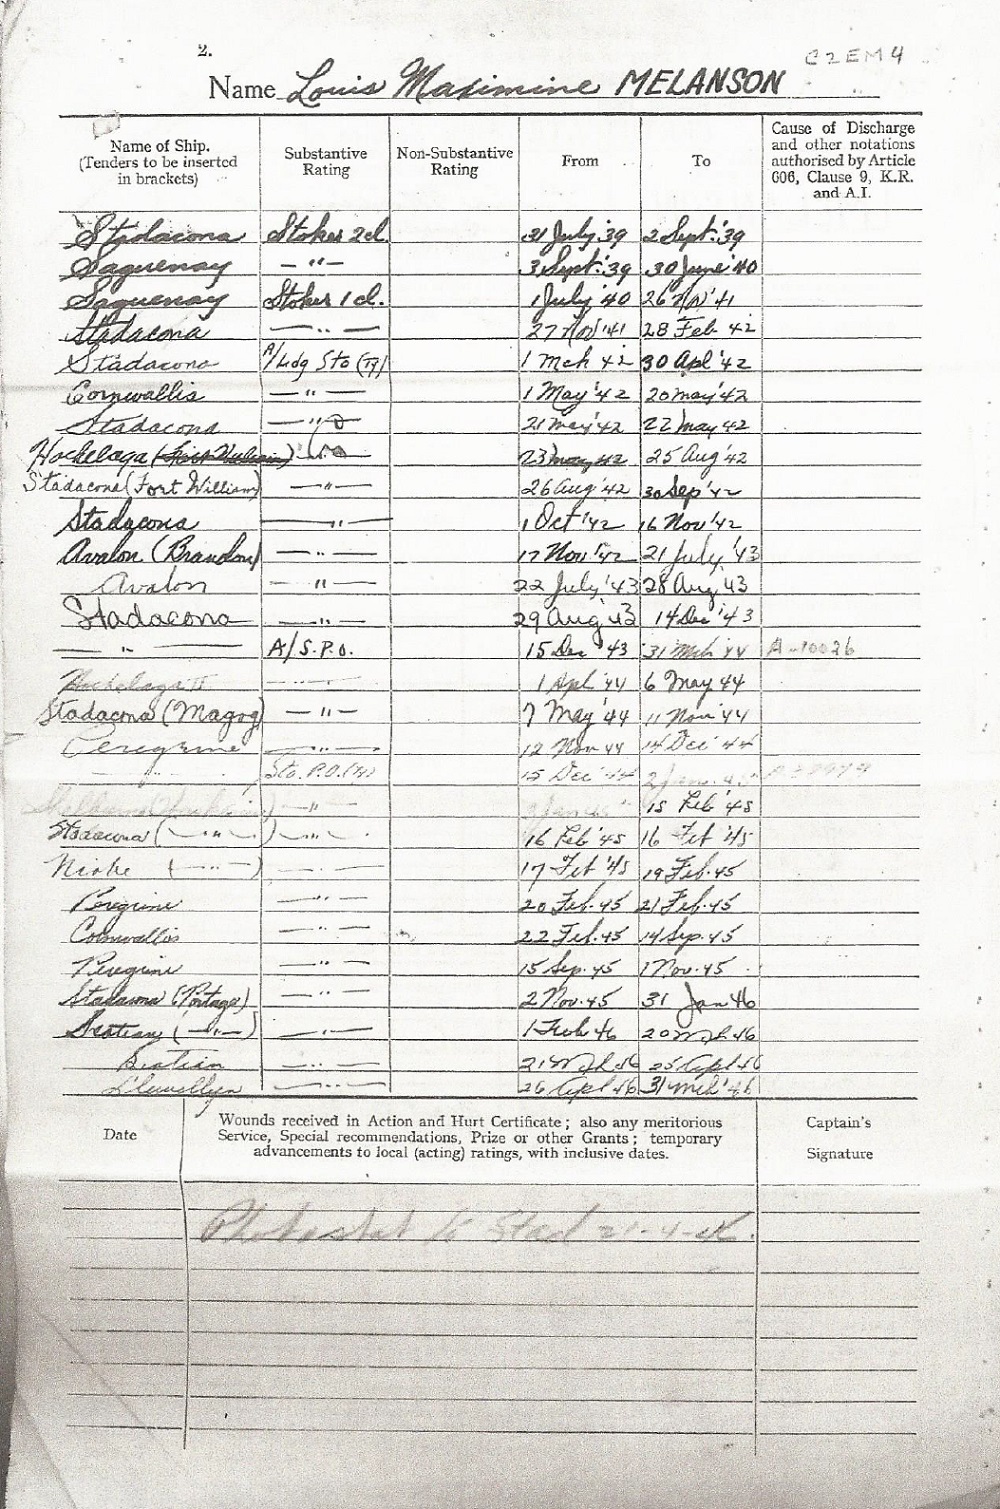 2.
C2EM4
Name Louis Maximine MELANSON
Name of Ship. (Tenders to be inserted in brackets) Substantive Rating Non-Substantive Rating From To Cause of Discharge and other notations authorised by Article 606, Clause 9, K.R. and A.I.
Stadacona Stoker 2 cl. 31 July '39 2 Sept. '39
Saguenay —"— 3 Sept. '39 30 June '40
Saguenay Stoker 1 cl. 1 July '40 26 Nov '41
Stadacona —"— 27 Nov '41 28 Feb 42
Stadacona A/Ldg Sto (Ty) 1 Mch 42 30 Apl '42
Cornwallis —"— 1 May '42 20 May '42
Stadacona —"— 21 May '42 22 May 42
Hochelaga (Fort William) —"— 23 May 42 25 Aug '42
Stadacona (Fort William) —"— 26 Aug '42 30 Sep '42
Stadacona —"— 1 Oct '42 16 Nov '42
Avalon (Brandon) —"— 17 Nov '42 21 July '43
Avalon —"— 22 July '43 28 Aug 43
Stadacona —"— 29 Aug 43 14 Dec '43
—"— A/S.P.O. 15 Dec '43 31 Mch 44 A-10026
Hochelaga II —"— 1 Apl '44 6 May 44
Stadacona (Magog) —"— 7 May '44 11 Nov '44
Peregrine —"— 12 Nov 44 14 Dec '44
—"— Sto. P.O. (Ty) 15 Dec '44 2 Jan. 45
—"— 3 Jan 45 15 Feb '45
Stadacona (—"—) —"— 16 Feb '45 16 Feb '45
Niobe (—"—) —"— 17 Feb '45 19 Feb. 45
Peregrine —"— 20 Feb. 45 21 Feb. 45
Cornwallis —"— 22 Feb. 45 14 Sep. 45
Peregrine —"— 15 Sep. 45 1 Nov. 45
Stadacona (Portage) —"— 2 Nov. 45 31 Jan 46
Scotian (—"—) —"— 1 Feb 46 20 Mch 46
Scotian —"— 21 Mch 46 25 Apl 46
Llewellyn —"— 26 Apl 46 31 Mch '46
Date Wounds received in Action and Hurt Certificate; also any meritorious Service, Special recommendations, Prize or other Grants; temporary advancements to local (acting) ratings, with inclusive dates. Captain's Signature
Photostat to Stad 21-4-46.